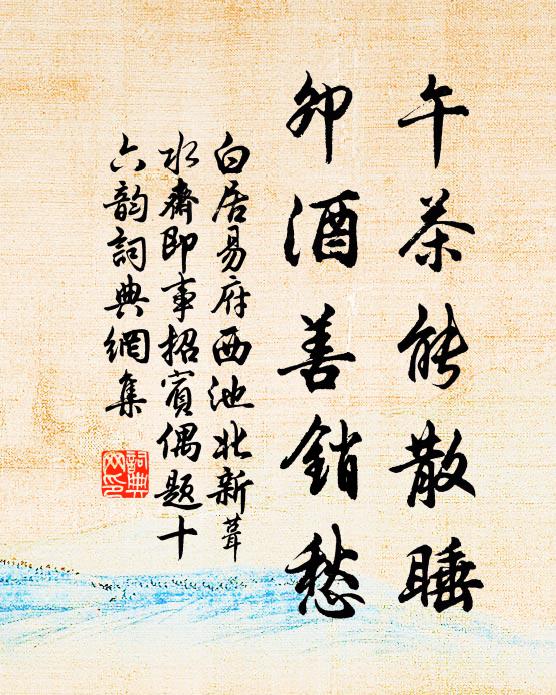 午茶能散睡
卯酒善銷愁
白居易府西池北新葺
水齋即事招賓偶題十
六韵詞典網集
詞典
网印